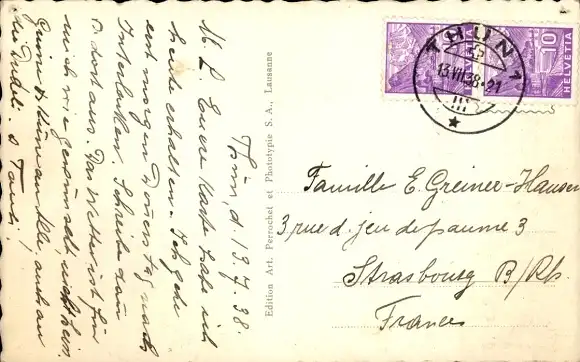 Thun, d. 13.7.38.
M. L. Eure Karte habe ich
heute erhalten. Ich gehe
erst morgen Donnerstag nach
Interlaken. Schreibe dann
v. dort aus. Das Wetter ist für
mich wie gewünscht nicht heiss.
Grüsse & Küsse an Alle, auch an
Edition Art. Perrochet et Phototypie S. A., Lausanne
THUN 1
13.VII.38-21
10
HELVETIA
Famille E. Greiner-Hansen
3 rue d. jeu de paume 3
Strasbourg B/Rh.
France